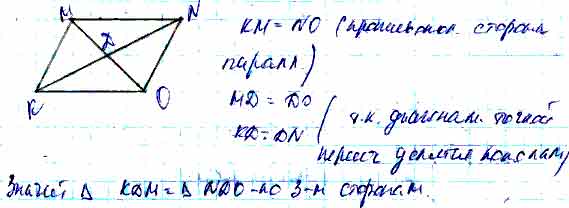 M N
KM = NO (противопол. стороны
D
паралл.)
MD = DO
K O
KD = DN (т.к. диагонал. точкой
пересеч делятся пополам)
Значит Δ KDM = Δ NDO - по 3-м сторонам.